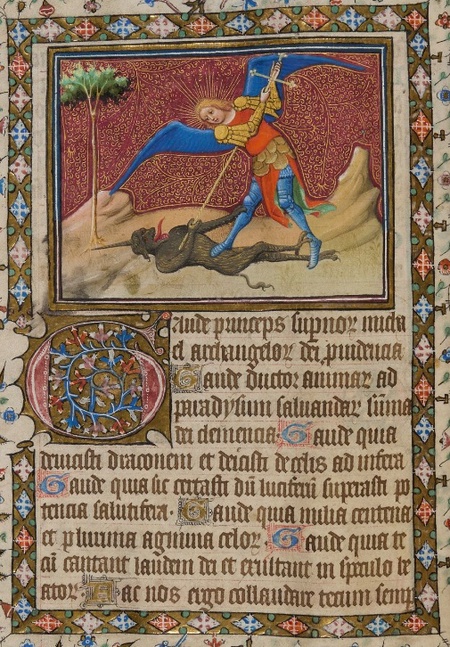 Gaude princeps supnoꝝ micha
el archangeloꝝ dei puidencia
Gaude ductor animaꝝ ad
paradysum saluandaꝝ sūma
dei clemencia. Gaude quia
deuicisti draconem et deicisti de celis ad infera
Gaude quia sic certasti dū luciferū superasti po
tencia salutifera. Gaude quia milia centena
et plurima agmina celoꝝ. Gaude quia te
cū cantant laudem dei et exultant in speculo be
atoꝝ. Fac nos ergo collaudare tecum semp